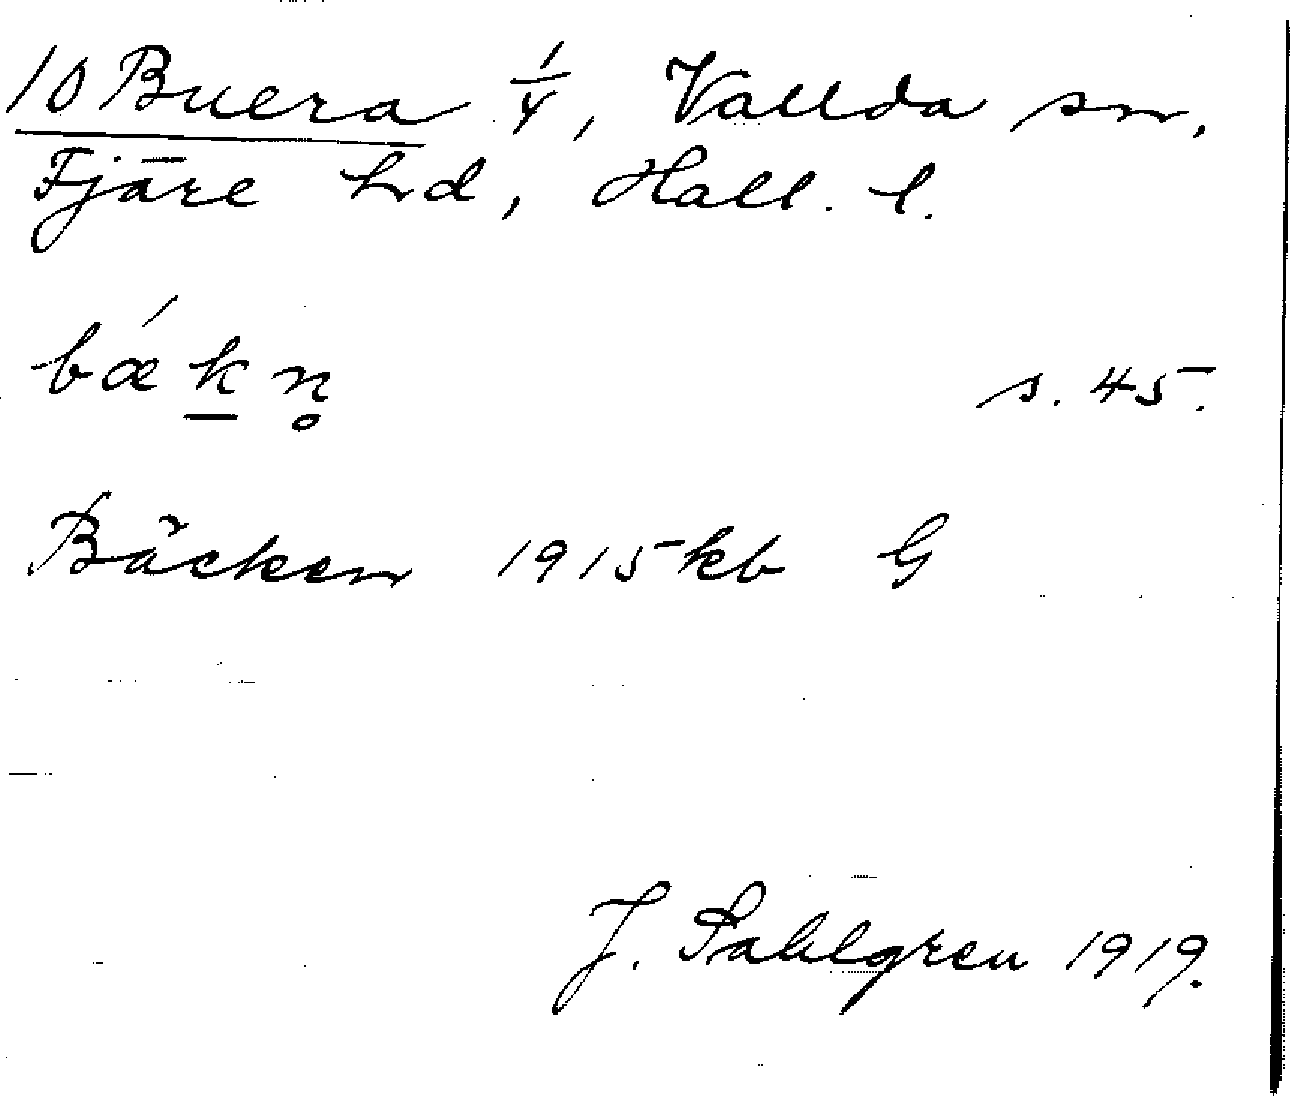 10 Buera 1/4, Vallda sn,
Fjäre hd, Hall. l.
bǽk̲n̥ s. 45.
Bäcken 1915 kb G
J. Sahlgren 1919.